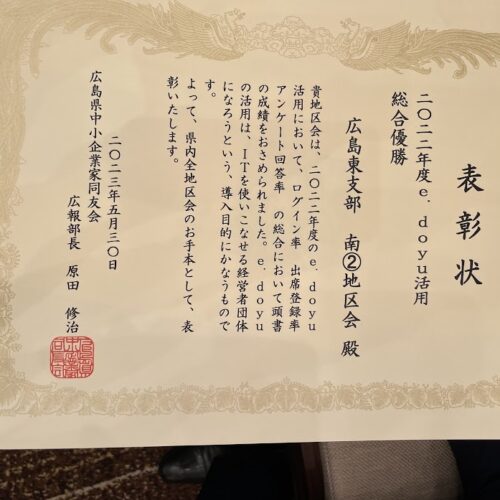 表彰状
二〇二二年度e．doyu活用
総合優勝
広島東支部　南②地区会　殿
貴地区会は、二〇二二年度のe．doyu
活用において、ログイン率　出席登録率
アンケート回答率　の総合において頭書
の成績をおさめられました。e．doyu
の活用は、ITを使いこなせる経営者団体
になろうという、導入目的にかなうもので
す。
よって、県内全地区会のお手本として、表
彰いたします。
二〇二三年五月三〇日
広島県中小企業家同友会
広報部長　原田　修治